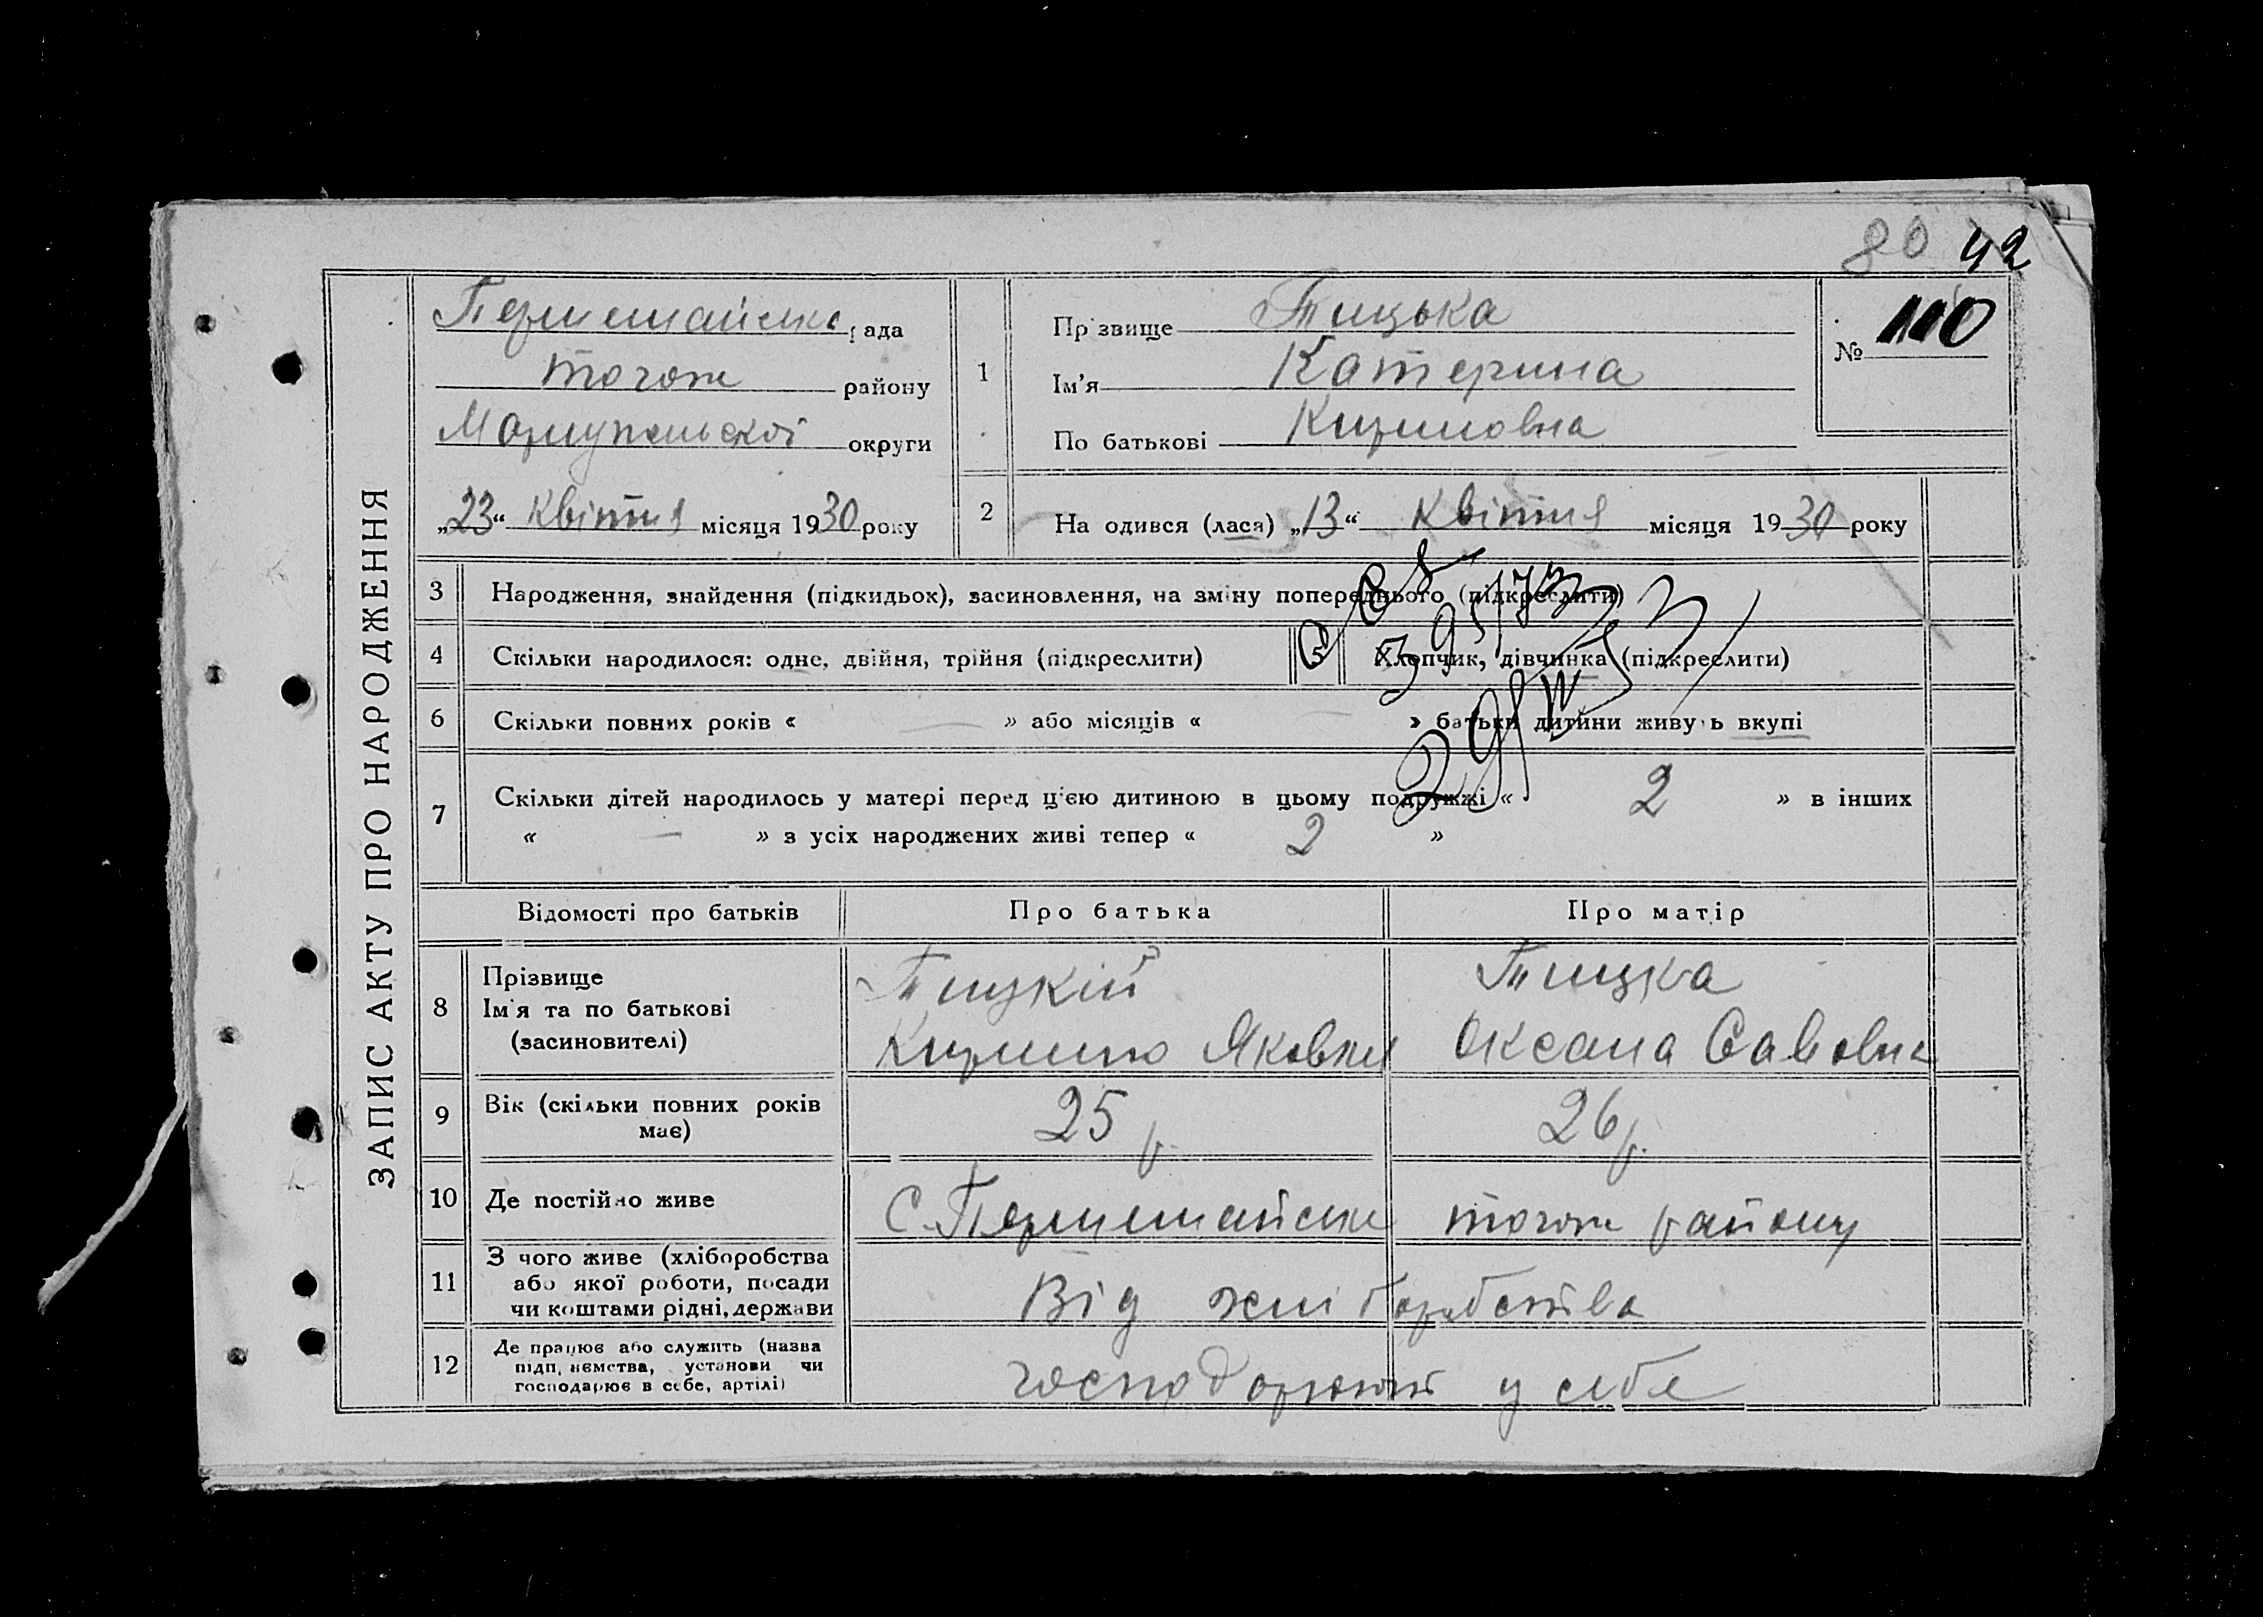 80 42
ЗАПИС АКТУ ПРО НАРОДЖЕННЯ
Першемайська рада
тогож району
Маріупольської округи
„23“ квітня місяця 1930 року
1
Прізвище Тицька
Ім'я Катерина
По батькові Кириловна
№ 110
2
На одився (лася) „13“ квітня місяця 1930 року
3 Народження, знайдення (підкидьох), засиновлення, на зміну попереднього (підкреслити)
4 Скільки народилося: одне, двійня, трійня (підкреслити) 5 Хлопчик, дівчинка (підкреслити)
6 Скільки повних років « — » або місяців « — » батьки дитини живуть вкупі
7 Скільки дітей народилось у матері перед цією дитиною в цьому подружжі « 2 » в інших
« — » з усіх народжених живі тепер « 2 »
Відомості про батьків Про батька Про матір
8 Прізвище Тицкій Тицка
Ім'я та по батькові
(засиновителі) Кирило Яковл Оксана Савовна
9 Вік (скільки повних років
має) 25 р. 26 р.
10 Де постійно живе С. Першемайське тогож району
11 З чого живе (хліборобства
або якої роботи, посади
чи коштами рідні, держави Від хліборобства
12 Де працює або служить (назва
підприємства, установи чи
господарює в себе, артілі) господарюють у себе